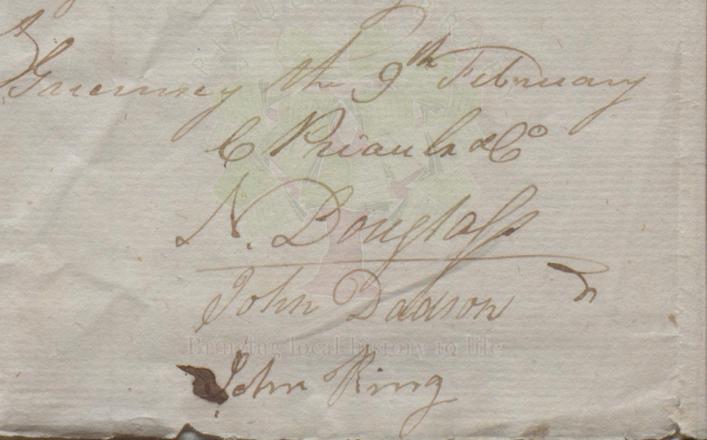 Guernsey the 9th February
C Priaulx & Co
N. Douglass
John Dadson
Bringing local history to life
John Ring